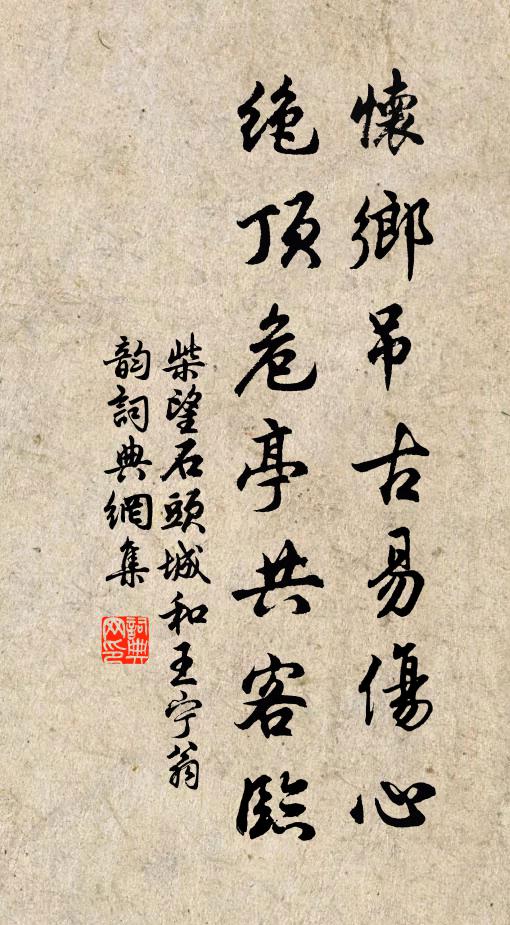 懷鄉吊古易傷心
绝顶危亭共客臨
柴望石頭城和王宁翁
韵詞典網集
詞典网印